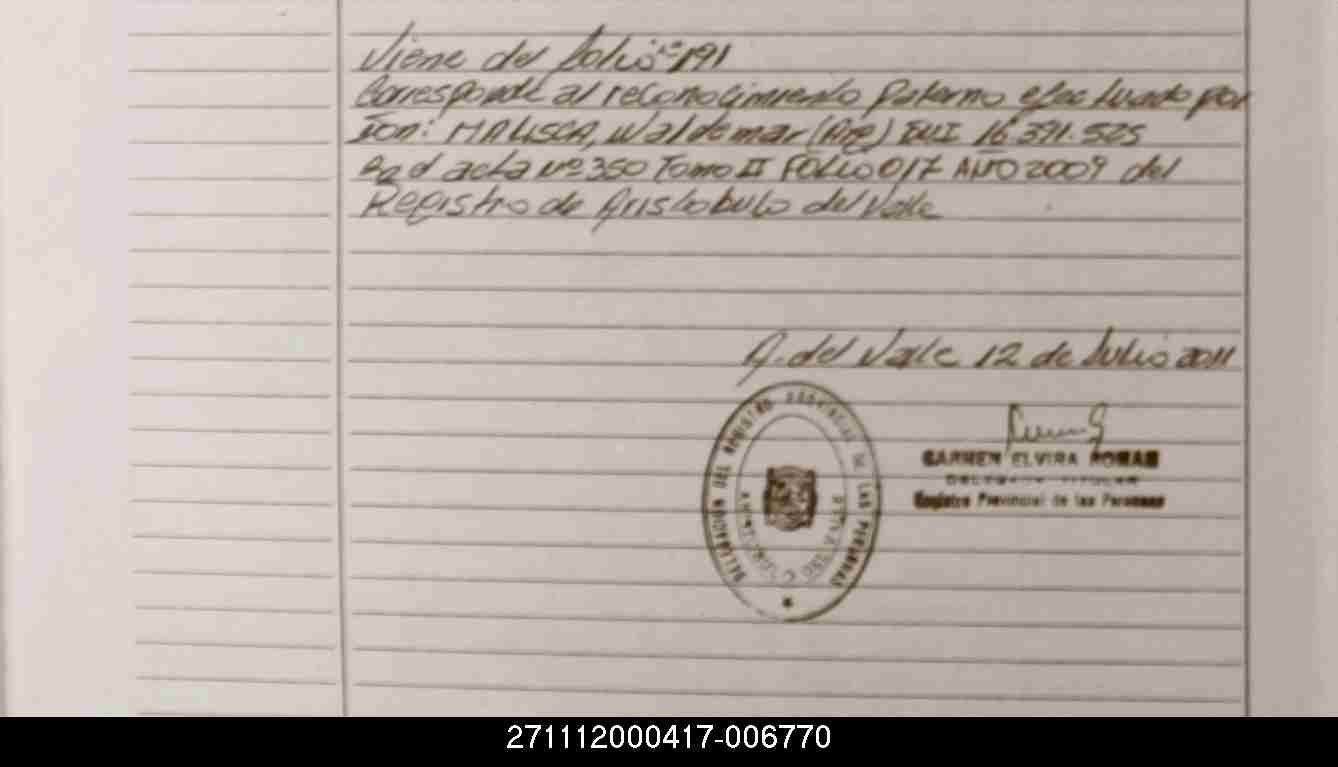 Viene del folio nº 191
Corresponde al reconocimiento paterno efectuado por
Don: MALISCA, Waldemar (Arg) DNI 16.391.525
acta Nº 350 Tomo II FOLIO 017 AÑO 2009 del
Registro de Aristobulo del Valle
A. del Valle 12 de Julio 2011
DELEGACION DEL REGISTRO PROVINCIAL DE LAS PERSONAS
CARMEN ELVIRA ROMAN
DELEGADA TITULAR
Registro Provincial de las Personas
271112000417-006770